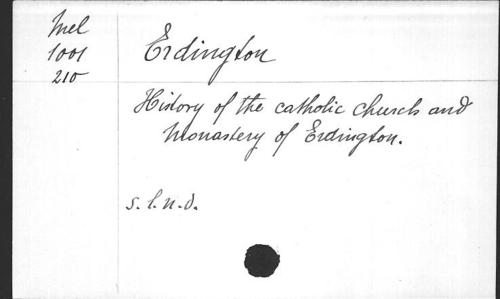 Mel
1001
210
Erdington
History of the catholic church and
Monastery of Erdington.
s. l. n. d.